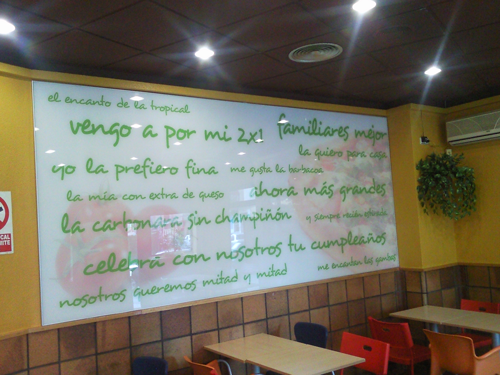 el encanto de la tropical
vengo a por mi 2x1
familiares mejor
la quiero para casa
yo la prefiero fina
me gusta la barbacoa
la mia con extra de queso
ahora más grandes
la carbonara sin champiñón
y siempre recién
celebra con nosotros tu cumpleaños
me encantan las
nosotros queremos mitad y mitad